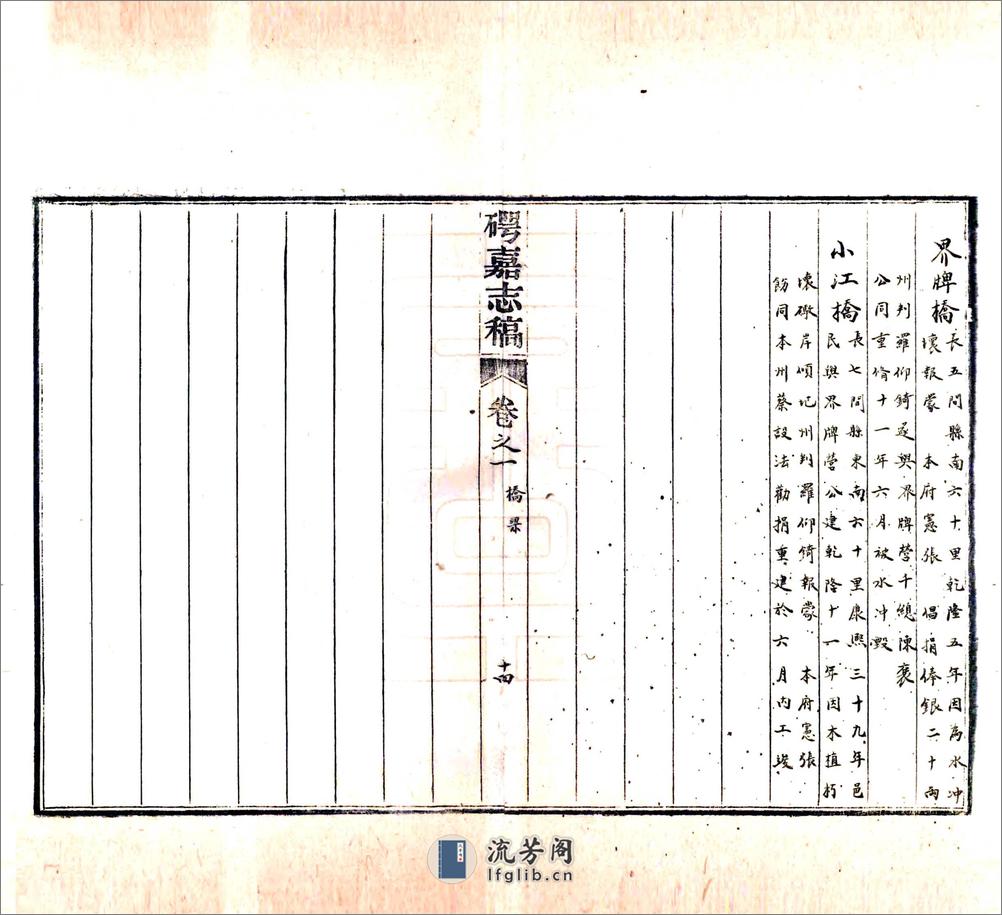 界牌橋長五間縣南六十里乾隆五年因為水冲
壞報蒙 本府憲張 倡捐俸銀二十兩
州判羅仰錡遂與界牌營千總陳褒
公同重脩十一年六月被水冲毀
小江橋長七間縣東南六十里康熙三十九年邑
民與界牌營公建乾隆十一年因木植朽
壞礅岸傾圮州判羅仰錡報蒙 本府憲張
飭同本州蔡設法勸捐重建於六月內工竣
碍嘉志稿 卷之一 橋梁 十四
流芳阁
lfglib.cn